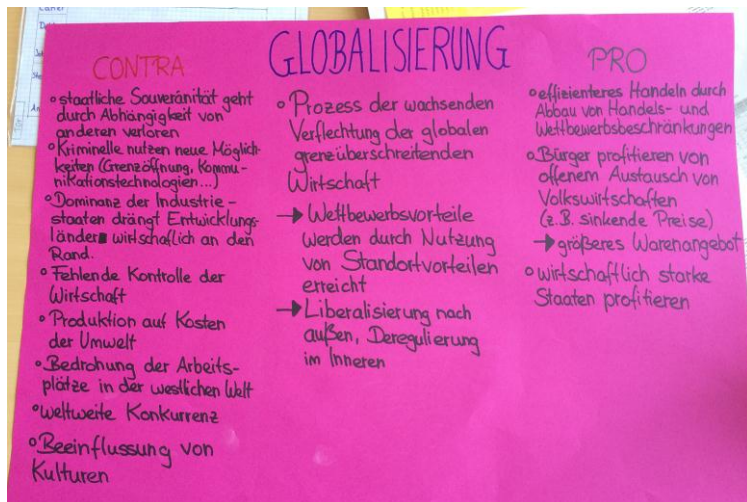 GLOBALISIERUNG
CONTRA
• staatliche Souveränität geht
durch Abhängigkeit von
anderen verloren
• Kriminelle nutzen neue Möglich-
keiten (Grenzöffnung, Kommu-
nikationstechnologien...)
• Dominanz der Industrie-
staaten drängt Entwicklungs-
länder wirtschaftlich an den
Rand.
• Fehlende Kontrolle der
Wirtschaft
• Produktion auf Kosten
der Umwelt
• Bedrohung der Arbeits-
plätze in der westlichen Welt
• weltweite Konkurrenz
• Beeinflussung von
Kulturen
• Prozess der wachsenden
Verflechtung der globalen
grenzüberschreitenden
Wirtschaft
→ Wettbewerbsvorteile
werden durch Nutzung
von Standortvorteilen
erreicht
→ Liberalisierung nach
außen, Deregulierung
im Inneren
PRO
• effizienteres Handeln durch
Abbau von Handels- und
Wettbewerbsbeschränkungen
• Bürger profitieren von
offenem Austausch von
Volkswirtschaften
(z.B. sinkende Preise)
→ größeres Warenangebot
• wirtschaftlich starke
Staaten profitieren